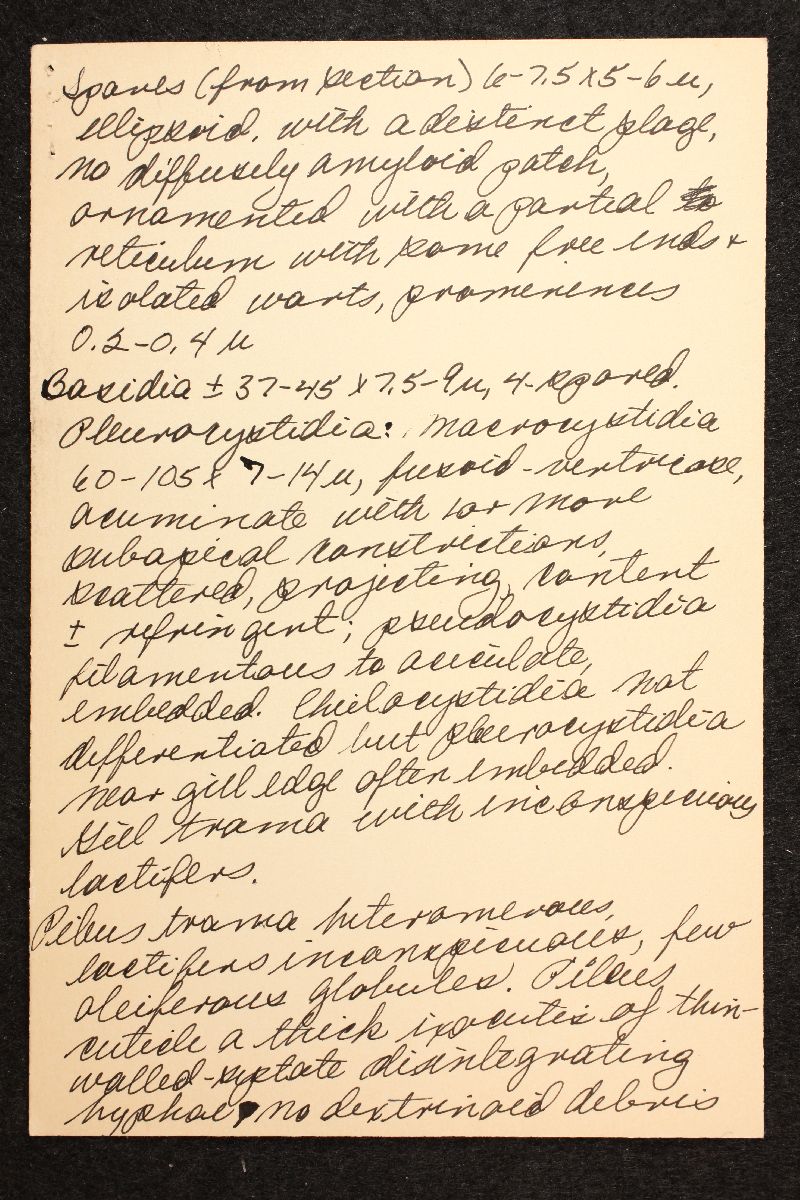 Spores (from section) 6-7.5 x 5-6 u,
ellipsoid, with a distinct plage,
no diffusely amyloid patch,
ornamented with a partial to
reticulum with some free ends +
isolated warts, promenences
0.2-0.4 u
Basidia ± 37-45 x 7.5-9u, 4-spored.
Pleurocystidia: Macrocystidia
60-105 x 7-14u, fusoid-ventricose,
acuminate with 1 or more
subapical constrictions,
scattered, projecting, content
± refringent; pseudocystidia
filamentous to aciculate,
embedded. Cheilocystidia not
differentiated but pleurocystidia
near gill edge often embedded.
Gill trama with inconspicuous
lactifers.
Pileus trama heteromerous,
lactifers inconspicuous, few
oleiferous globules. Pileus
cuticle a thick ixocutis of thin-
walled-septate disintegrating
hyphae, no dextrinoid debris